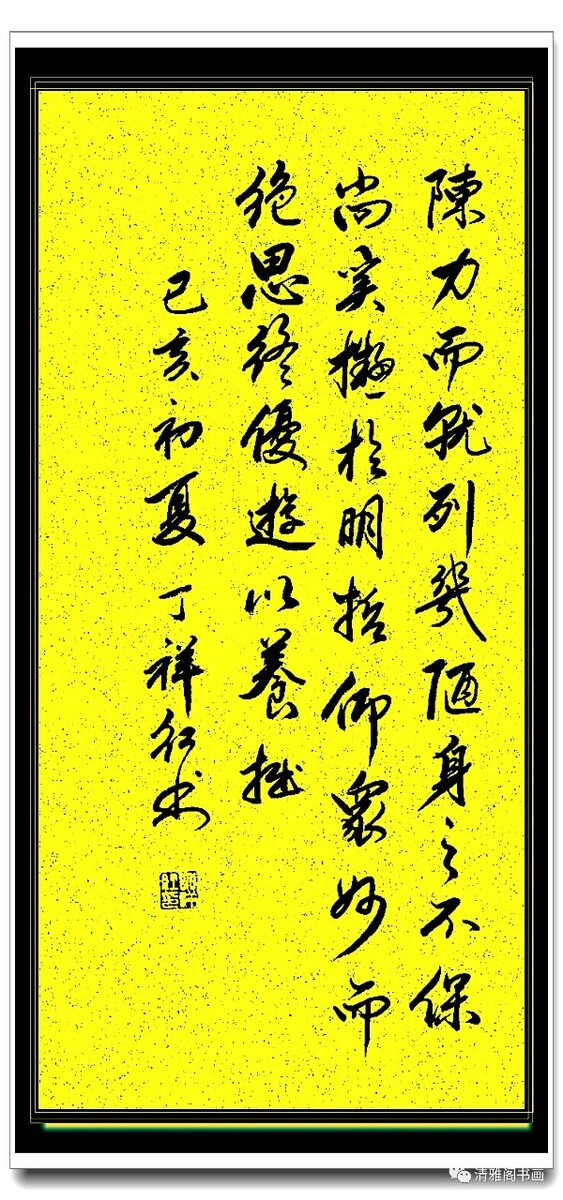 陳力而就列幾陋身之不保
尚奚擬於明哲仰眾妙而
絕思終優遊以養拙
己亥初夏丁祥红书
清雅阁书画